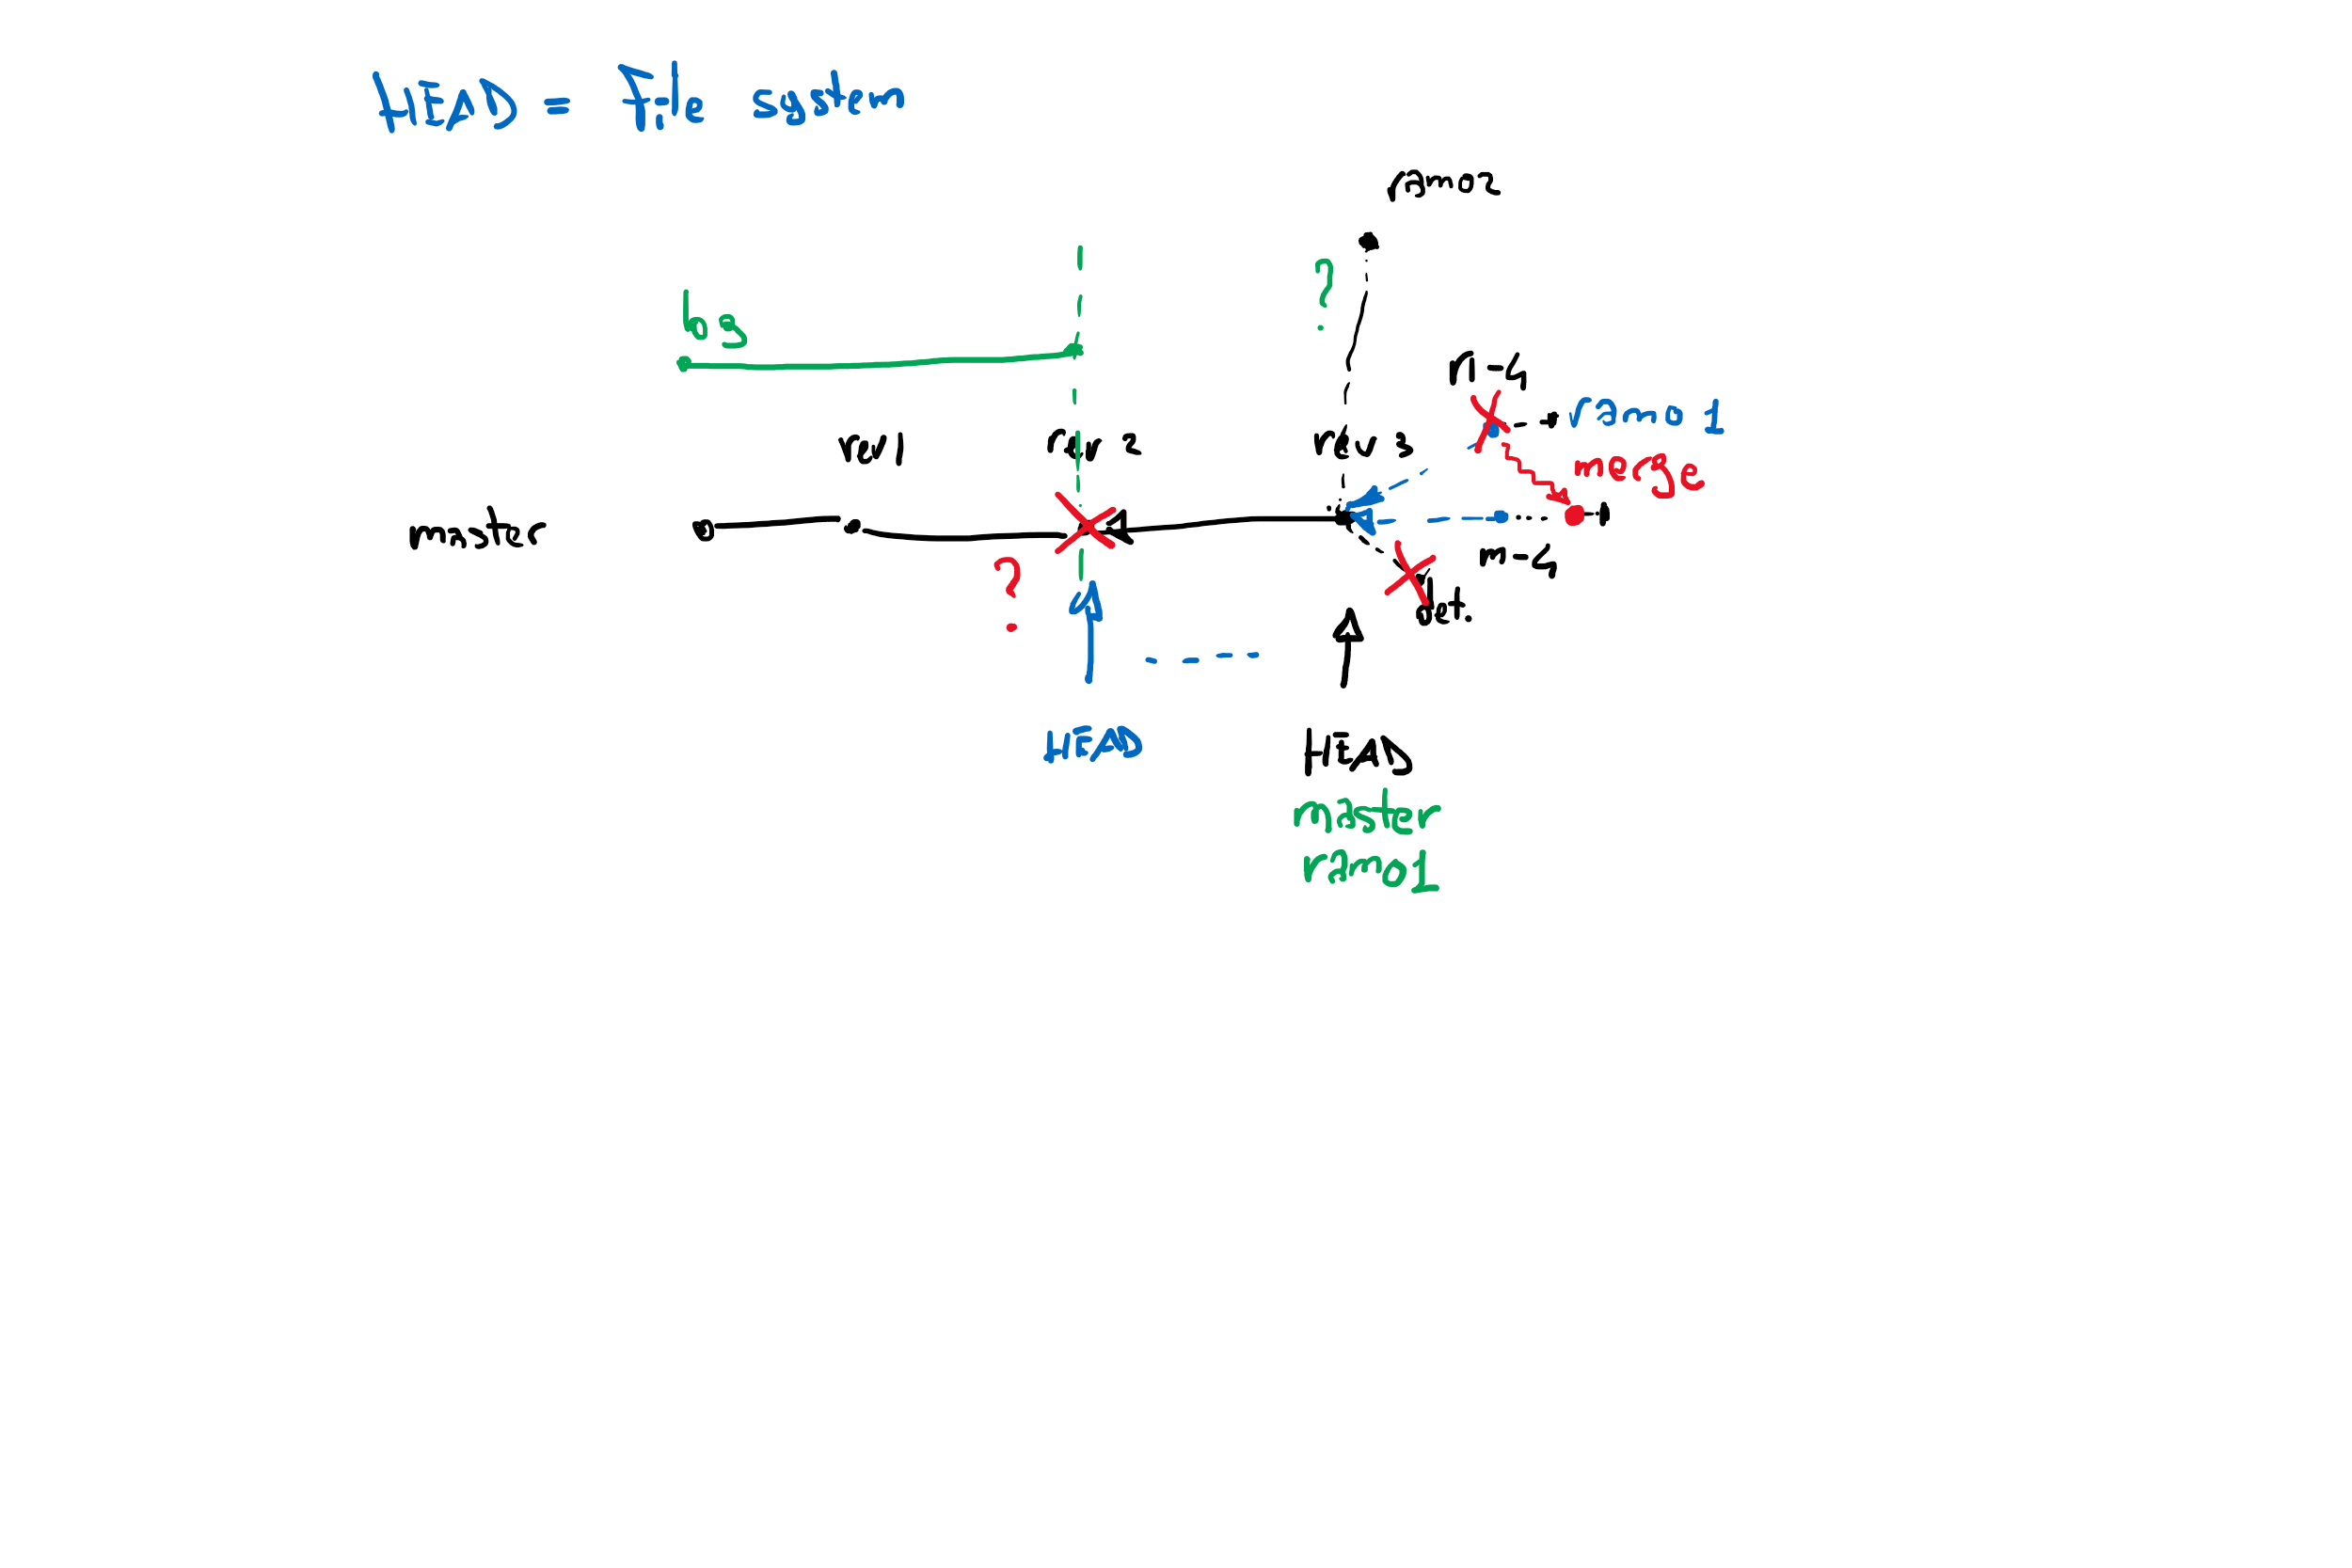 HEAD = File system
ramo2
?
log
r1-4
ramo1
rev1
rev2
rev3
merge
master
m-4
?
det.
HEAD
HEAD
master
ramo1